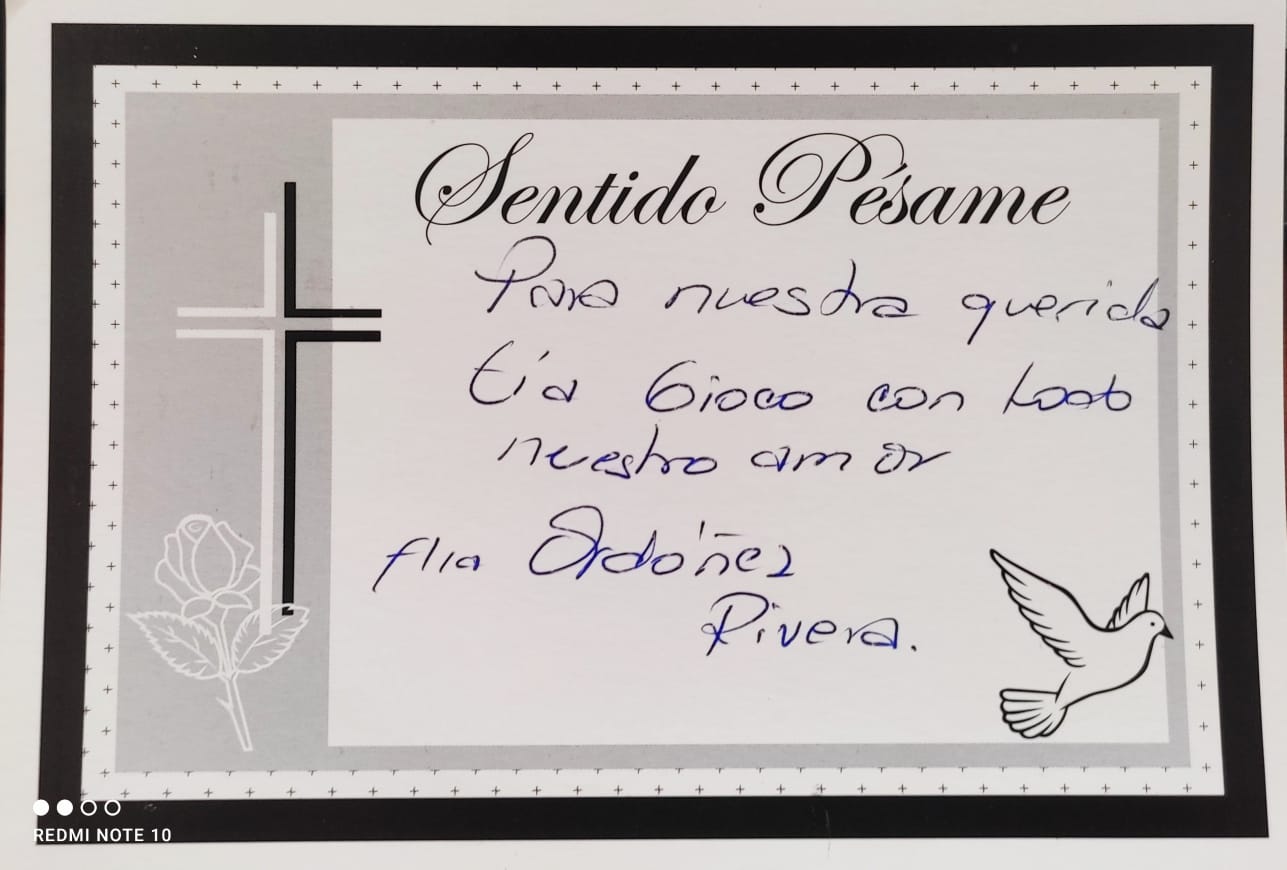 Sentido Pésame
Para nuestra querida
tía Gioco con todo
nuestro amor
flia Ordóñez
Rivera.
REDMI NOTE 10